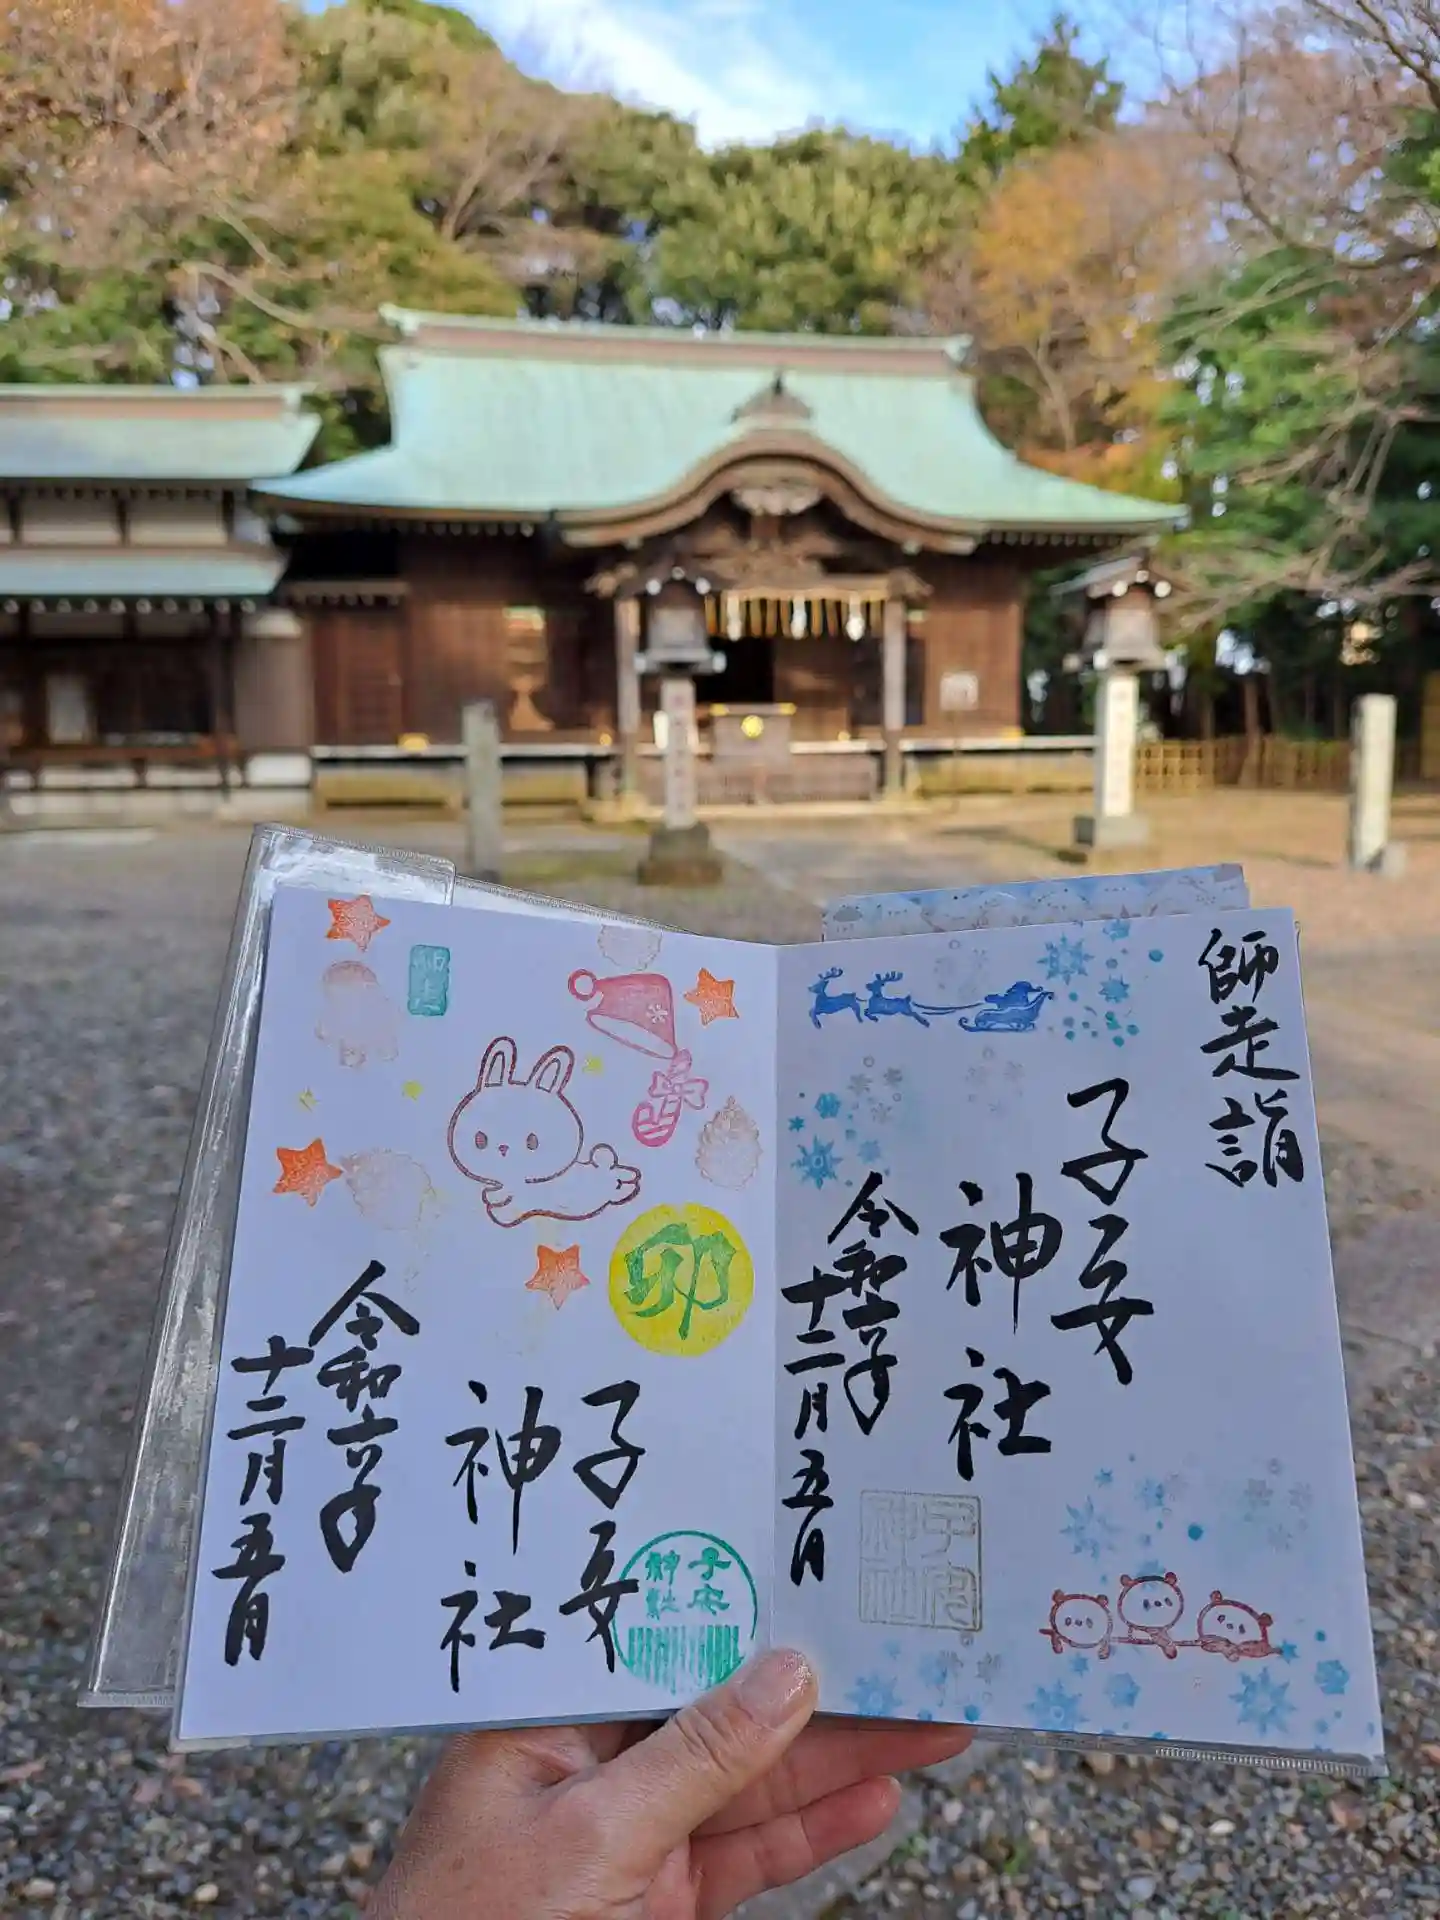 師走詣
子安
神社
令和六年
十二月五日
子安
神社
卯
子安
神社
令和六年
十二月五日
子安
神社